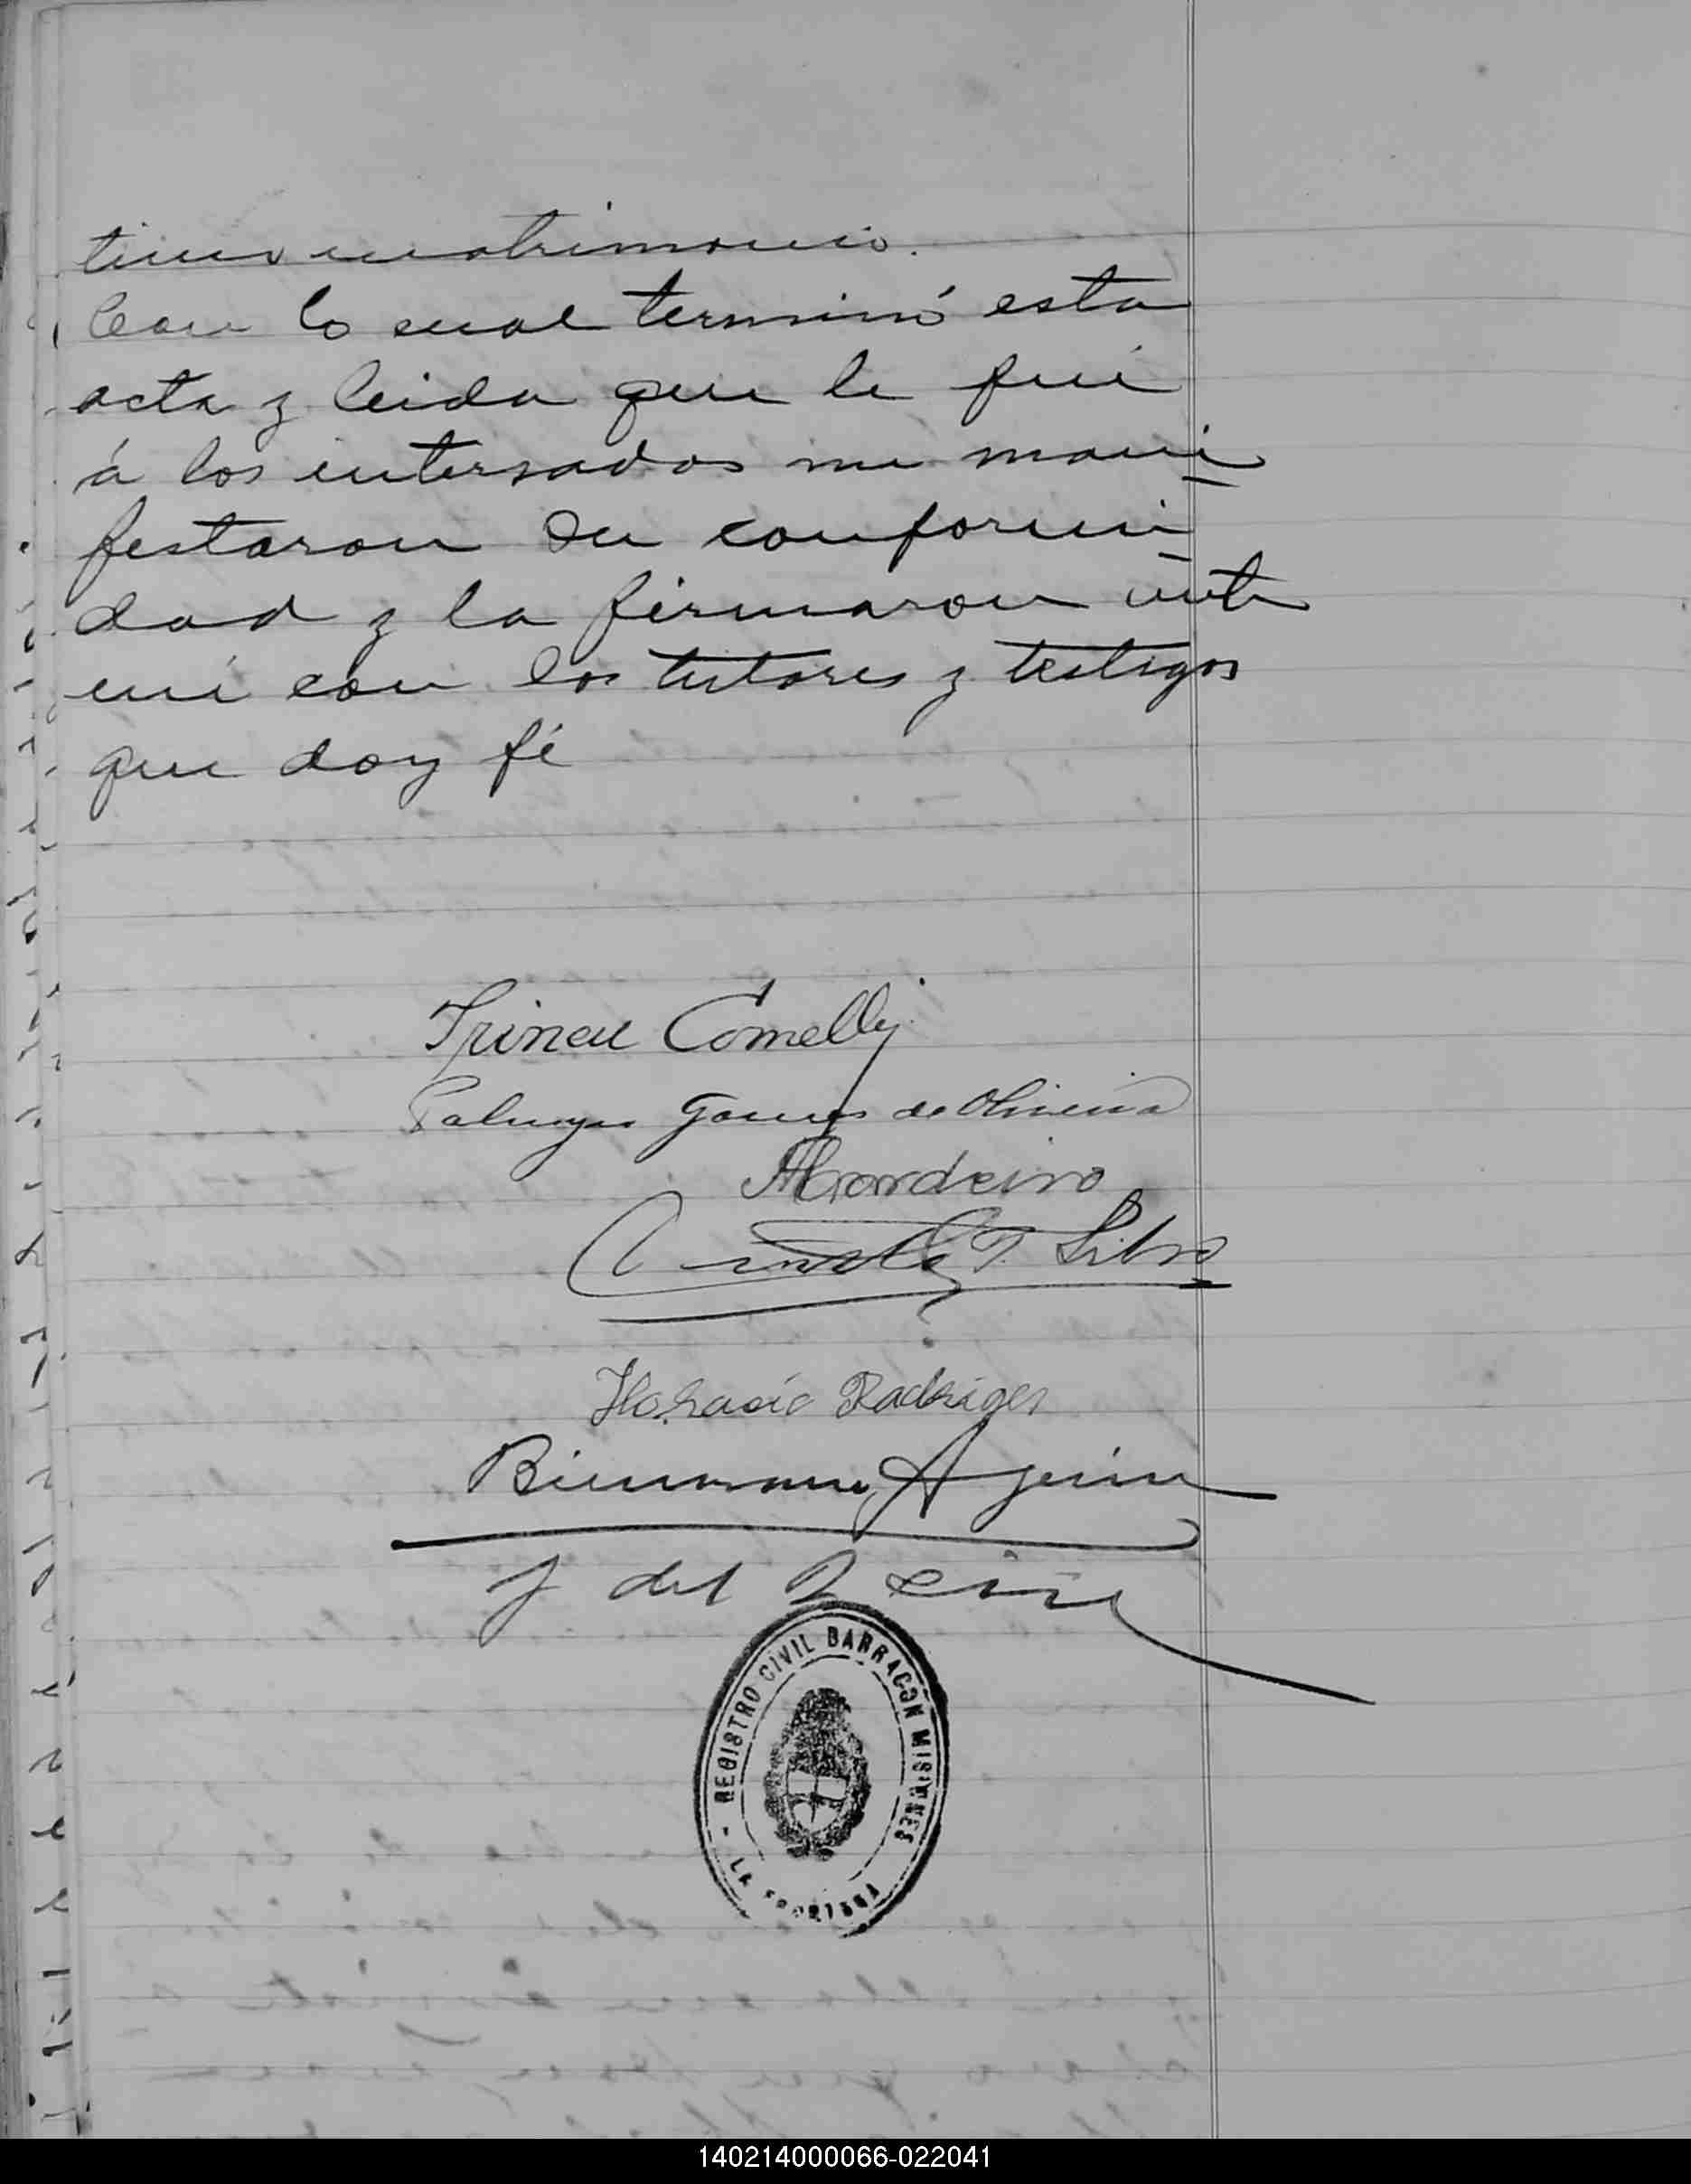 timo matrimonio.
Con lo cual terminó esta
acta y leida que le fué
á los intersados me mani
festaron su conformi
dad y la firmaron ante
mi con los tutores y testigos
que doy fé
Irineu Comelly
Gomes de Oliveira
T. Silva
Horacio Rodrigues
J del
- REGISTRO CIVIL BARRACON MISIONES
LA
140214000066-022041